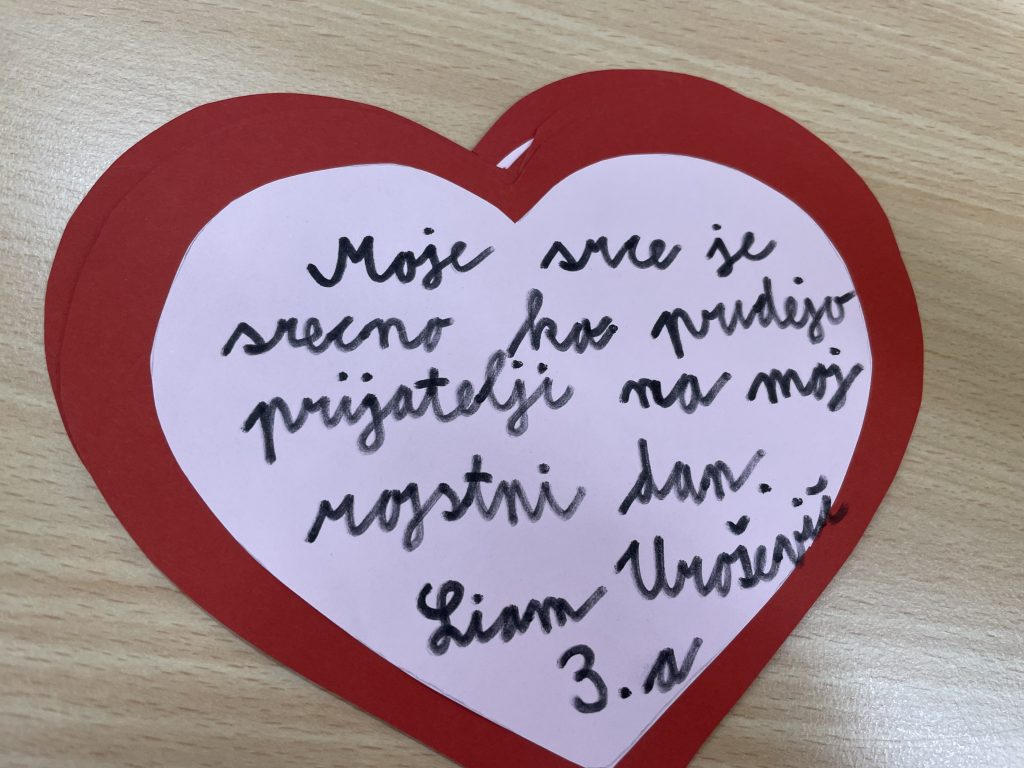 Moje srce je
srecno ko pridejo
prijatelji na moj
rojstni dan.
Liam Urošević
3. a